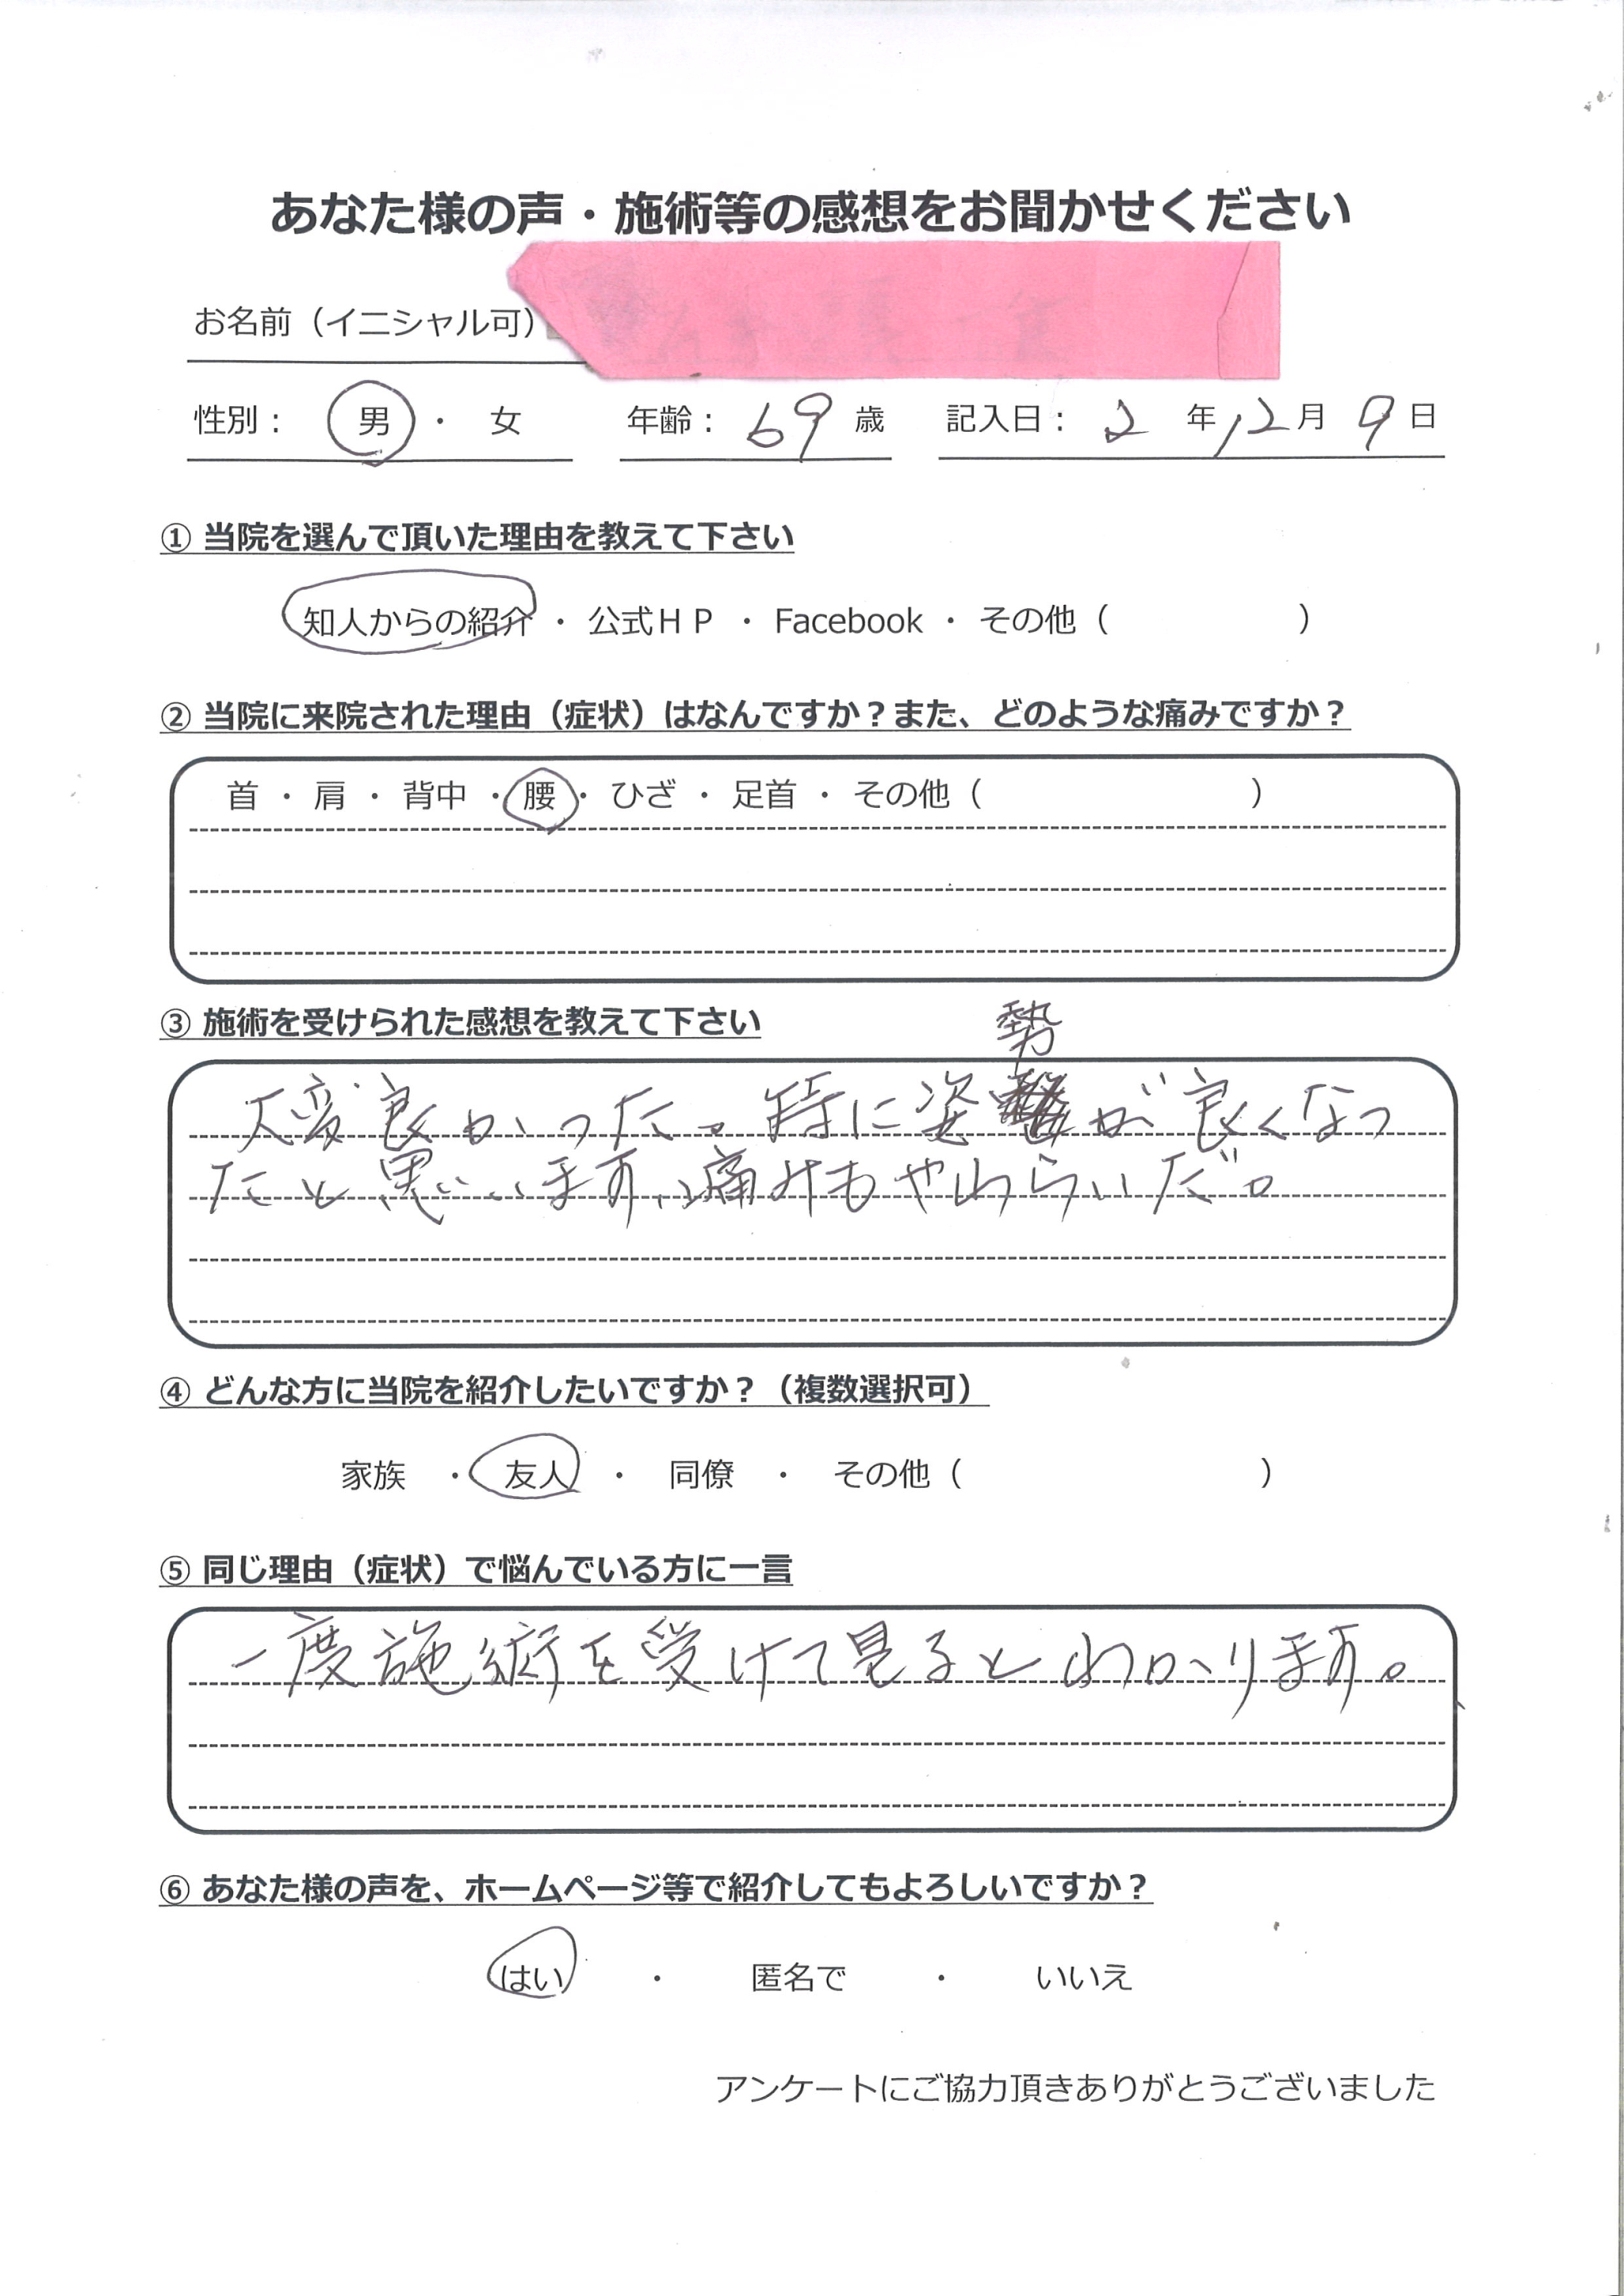 あなた様の声・施術等の感想をお聞かせください
お名前（イニシャル可）
性別： 男 ・ 女 年齢： 69 歳 記入日： 2 年 12 月 9 日
① 当院を選んで頂いた理由を教えて下さい
知人からの紹介 ・ 公式ＨＰ ・ Facebook ・ その他（ ）
② 当院に来院された理由（症状）はなんですか？また、どのような痛みですか？
首 ・ 肩 ・ 背中 ・ 腰 ・ ひざ ・ 足首 ・ その他（ ）
③ 施術を受けられた感想を教えて下さい
大変良かった。特に姿勢が良くなっ
たと思います、痛みもやわらいだ。
④ どんな方に当院を紹介したいですか？（複数選択可）
家族 ・ 友人 ・ 同僚 ・ その他（ ）
⑤ 同じ理由（症状）で悩んでいる方に一言
一度施術を受けて見るとわかります。
⑥ あなた様の声を、ホームページ等で紹介してもよろしいですか？
はい ・ 匿名で ・ いいえ
アンケートにご協力頂きありがとうございました